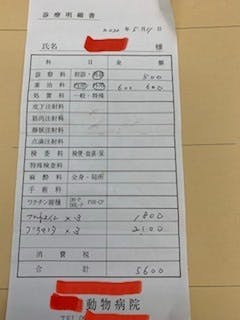 診療明細書
2020年5月19日
氏名
科目 金額
診察料 初診・再診 800
薬治料 内用・外用 600 600
処置料 一般・特殊
皮下注射料
筋肉注射料
静脈注射料
点滴注射料
検査料 検便・血液・尿
特殊検査料
麻酔料 全身・局所
手術料
ワクチン接種
×3 1800
×3 2100
消費税
合計 5600
動物病院
TEL